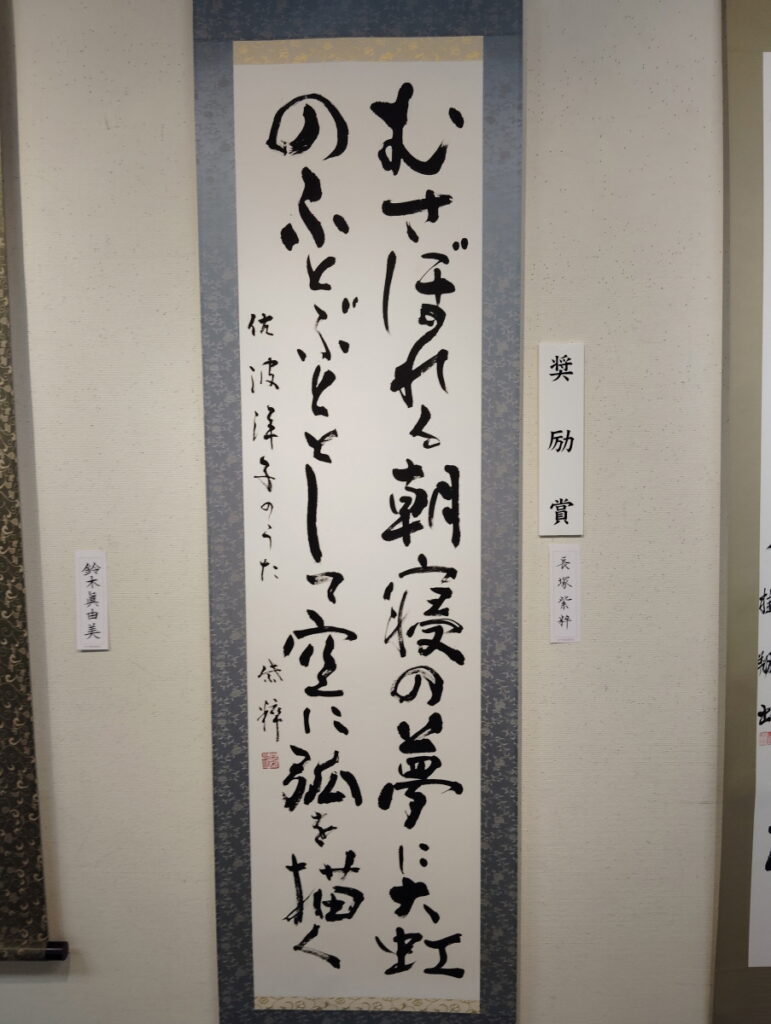 むさぼれる朝寝の夢に大虹
のふとぶととして空に弧を描く
佐波洋子のうた
紫粋
奨励賞
長塚紫粋
鈴木眞由美